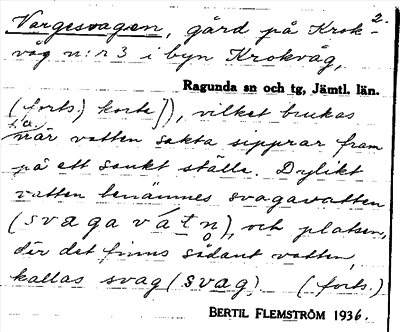 2.
Vargesvagen, gård på Krok-
våg n:r 3 i byn Krokvåg,
Ragunda sn och tg, Jämtl. län.
(forts.; korte]), vilket brukas
när vatten sakta sipprar fram
på ett sankt ställe. Dylikt
vatten benämnes svagavatten
(svagavátn), och platsen,
där det finns sådant vatten,
kallas svag (svag). (forts.)
BERTIL FLEMSTRÖM 1936.